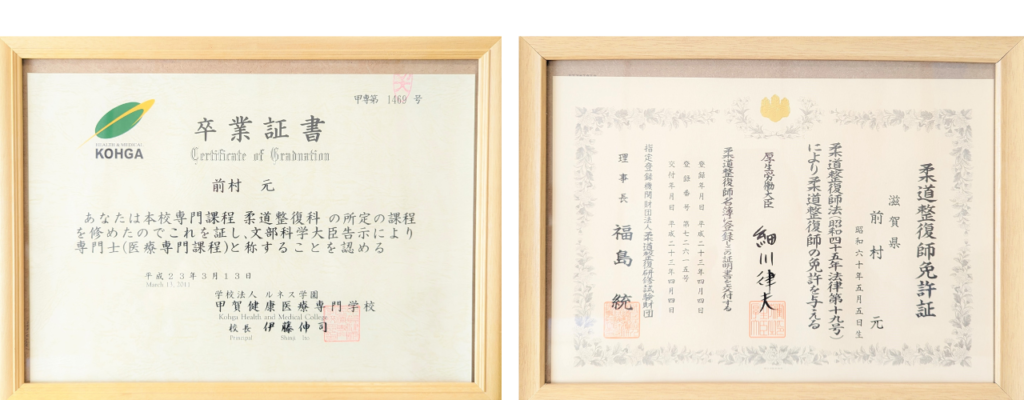 甲専第 1469 号
HEALTH & MEDICAL
KOHGA
卒業証書
Certificate of Graduation
前村 元
あなたは本校専門課程 柔道整復科 の所定の課程
を修めたのでこれを証し、文部科学大臣告示により
専門士(医療専門課程)と称することを認める
平成23年3月13日
March 13, 2011
学校法人 ルネス学園
甲賀健康医療専門学校
Kohga Health and Medical College
校長 伊藤伸司
Principal
柔道整復師免許証
滋賀県
前村 元
昭和六十年五月五日生
柔道整復師法(昭和四十五年法律第十九号)
により柔道整復師の免許を与える
厚生労働大臣 細川律夫
柔道整復師名簿に登録した証明書を交付する
登録年月日 平成二十三年四月四日
登録番号 第七二六一五号
交付年月日 平成二十三年四月四日
指定登録機関 財団法人柔道整復研修試験財団
理事長 福島 統